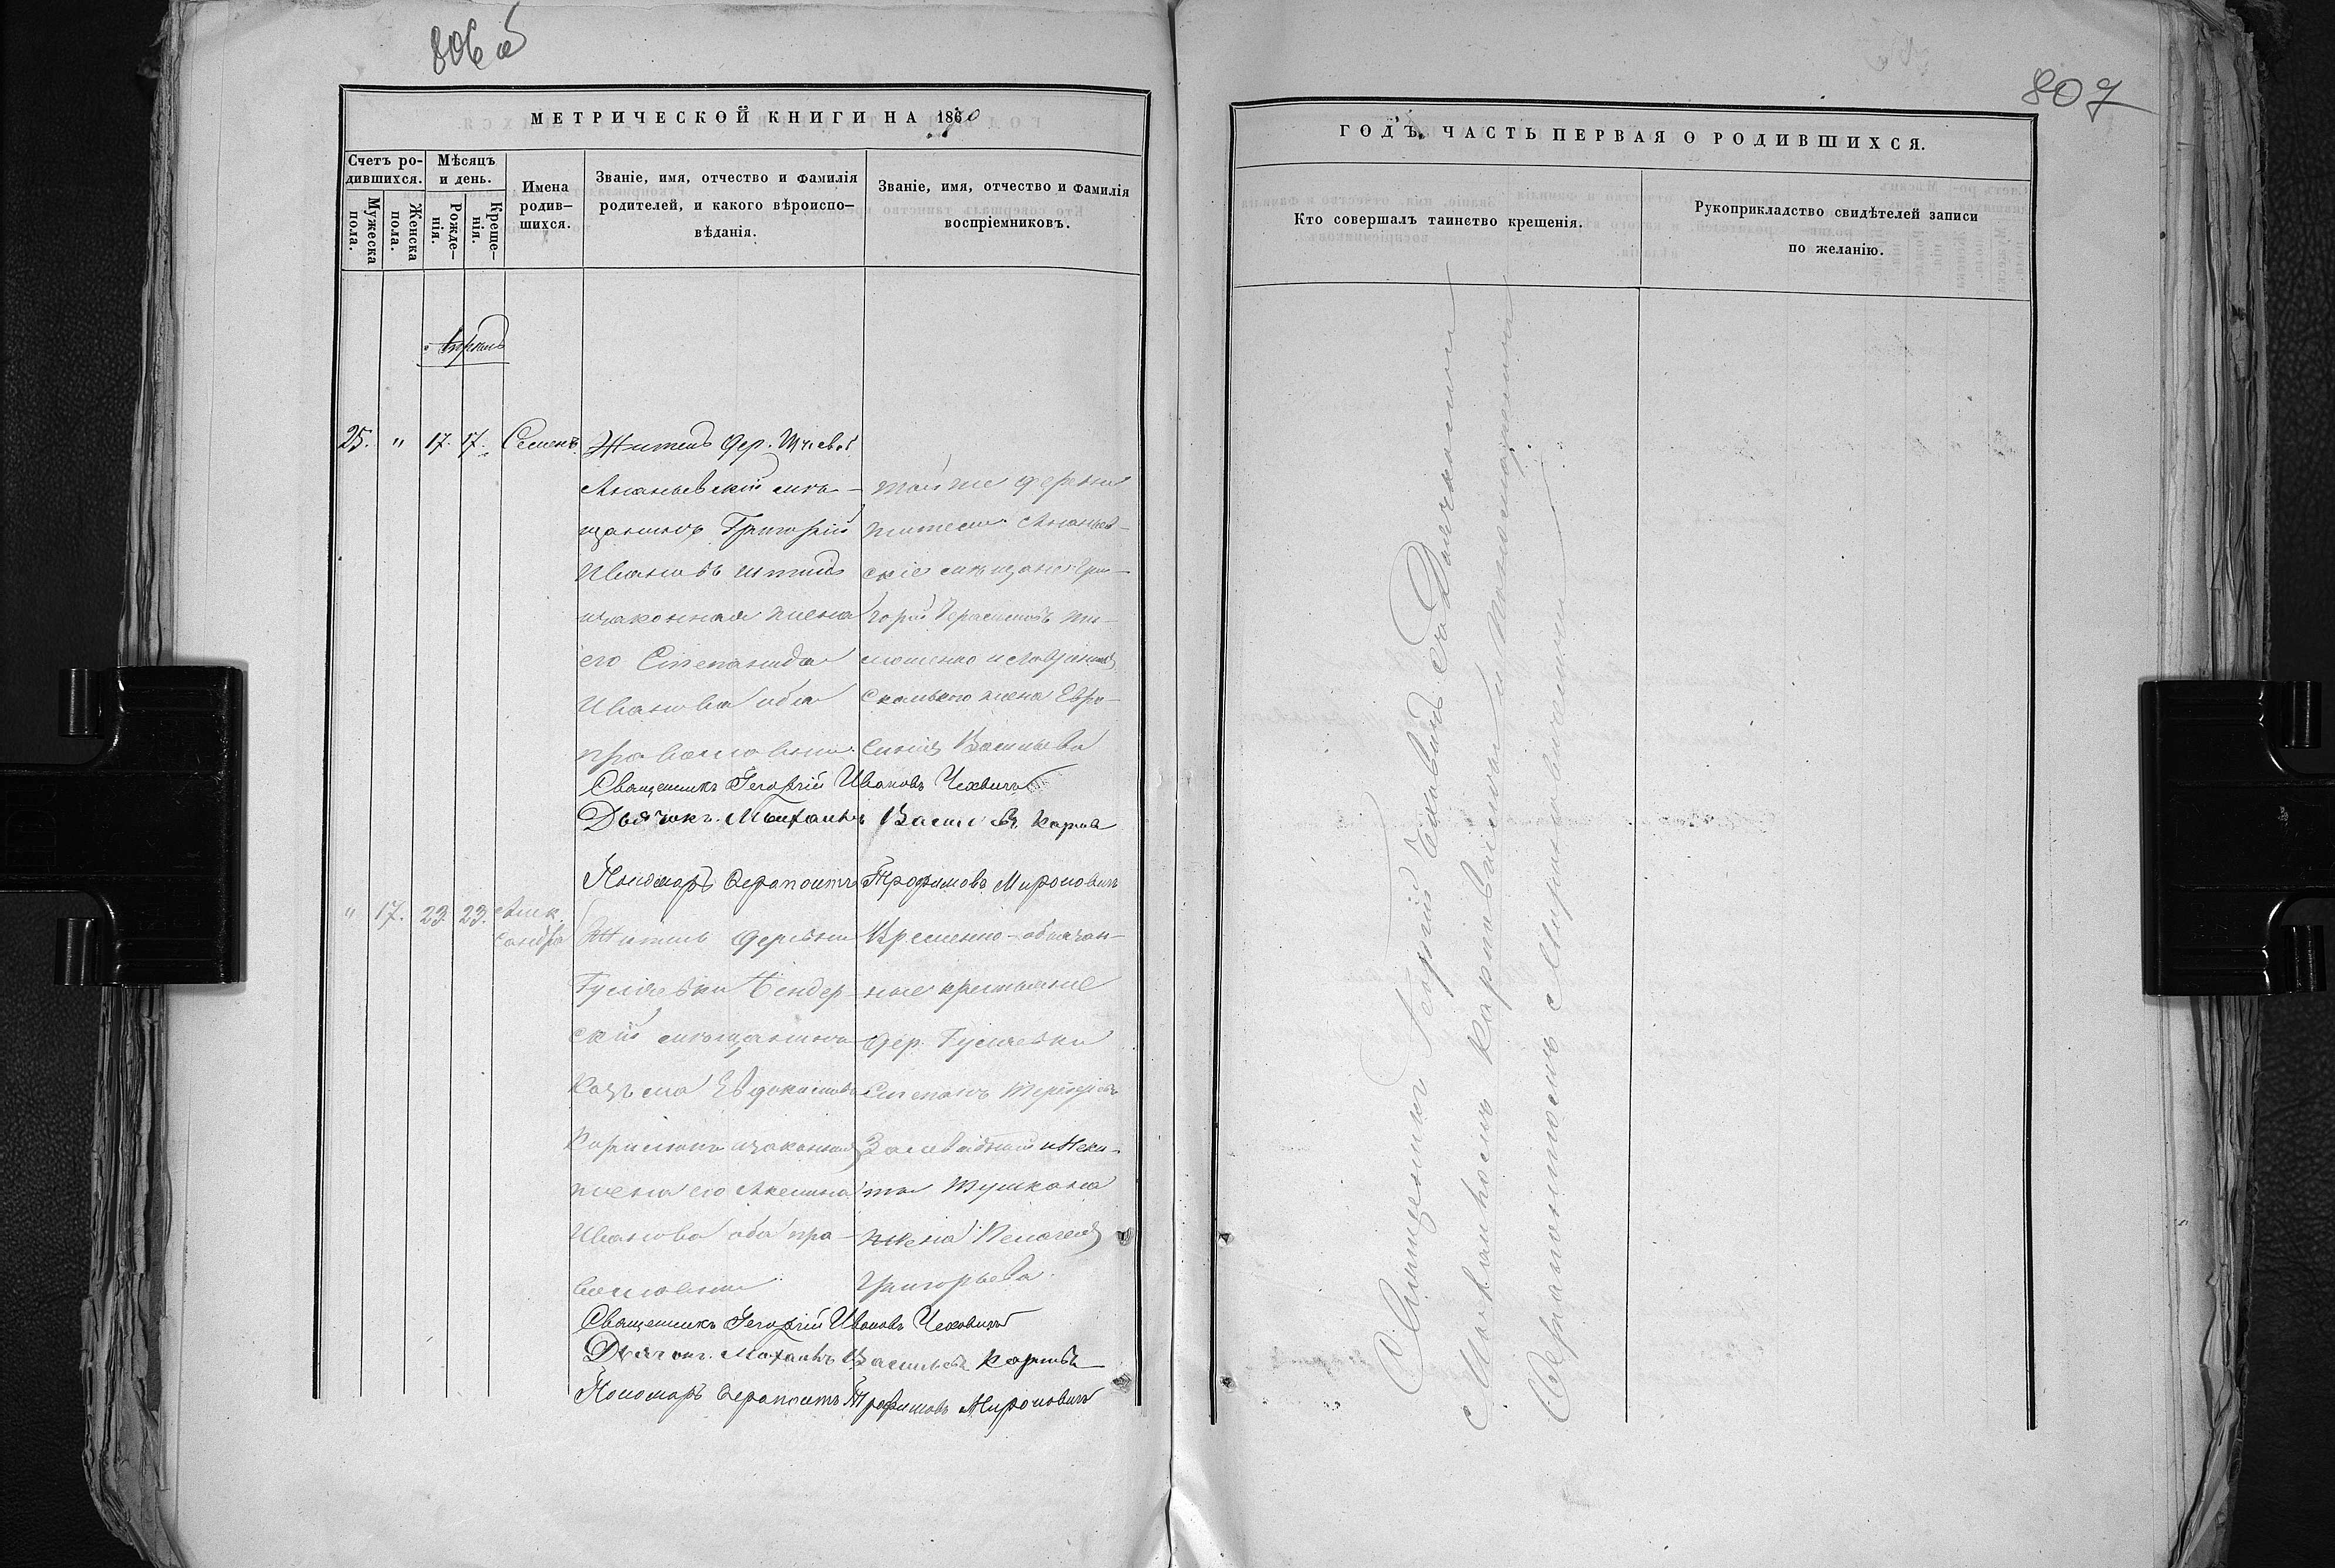 806 об
МЕТРИЧЕСКОЙ КНИГИ НА 1870
Счетъ ро-
дившихся.
Мужеска
пола.
Женска
пола.
Мѣсяцъ
и день.
Рожде-
нія.
Креще-
нія.
Имена
родив-
шихся.
Званіе, имя, отчество и фамилія
родителей, и какого вѣроиспо-
вѣданія.
Званіе, имя, отчество и фамилія
воспріемниковъ.
25. " 17. 17. Семенъ.
Житель дер.
Ананьевскій мѣ-
щанинъ Григорій
Ивановъ
изаконная жена
его Степанида
Иванова оба
православни.
тойже деревни
жители Ананьев-
скіе мѣщане Гри-
горій Герасимовъ
жена Евро-
синія Васильева
Священникъ Георгій Ивановъ Чеховичъ
Дьячокъ Михаилъ Васильевъ
Пономарь Ферапонтъ Трофимовъ Мироновичъ
" 17. 23. 23. Алек
сандра
Житель деревни
Гуляевки Бендер-
скій мѣщанинъ
Козьма Евдокимовъ
изаконная
жена его Акелина
Иванова оба пра-
вославни
Временно-обязан-
ные крестьяне
дер. Гуляевки
Степанъ
и Неки-
ты
жена Пелагея
Григорьева.
Священникъ Георгій Ивановъ Чеховичъ
Дьячокъ Михаилъ Васильевъ
Пономарь Ферапонтъ Трофимовъ Мироновичъ
807
ГОДЪ. ЧАСТЬ ПЕРВАЯ О РОДИВШИХСЯ.
Кто совершалъ таинство крещенія.
Рукоприкладство свидѣтелей записи
по желанію.
Священникъ Георгій Чеховичъ съ Дьячкомъ
Михаиломъ и Пономаремъ
Ферапонтомъ Мироновичемъ